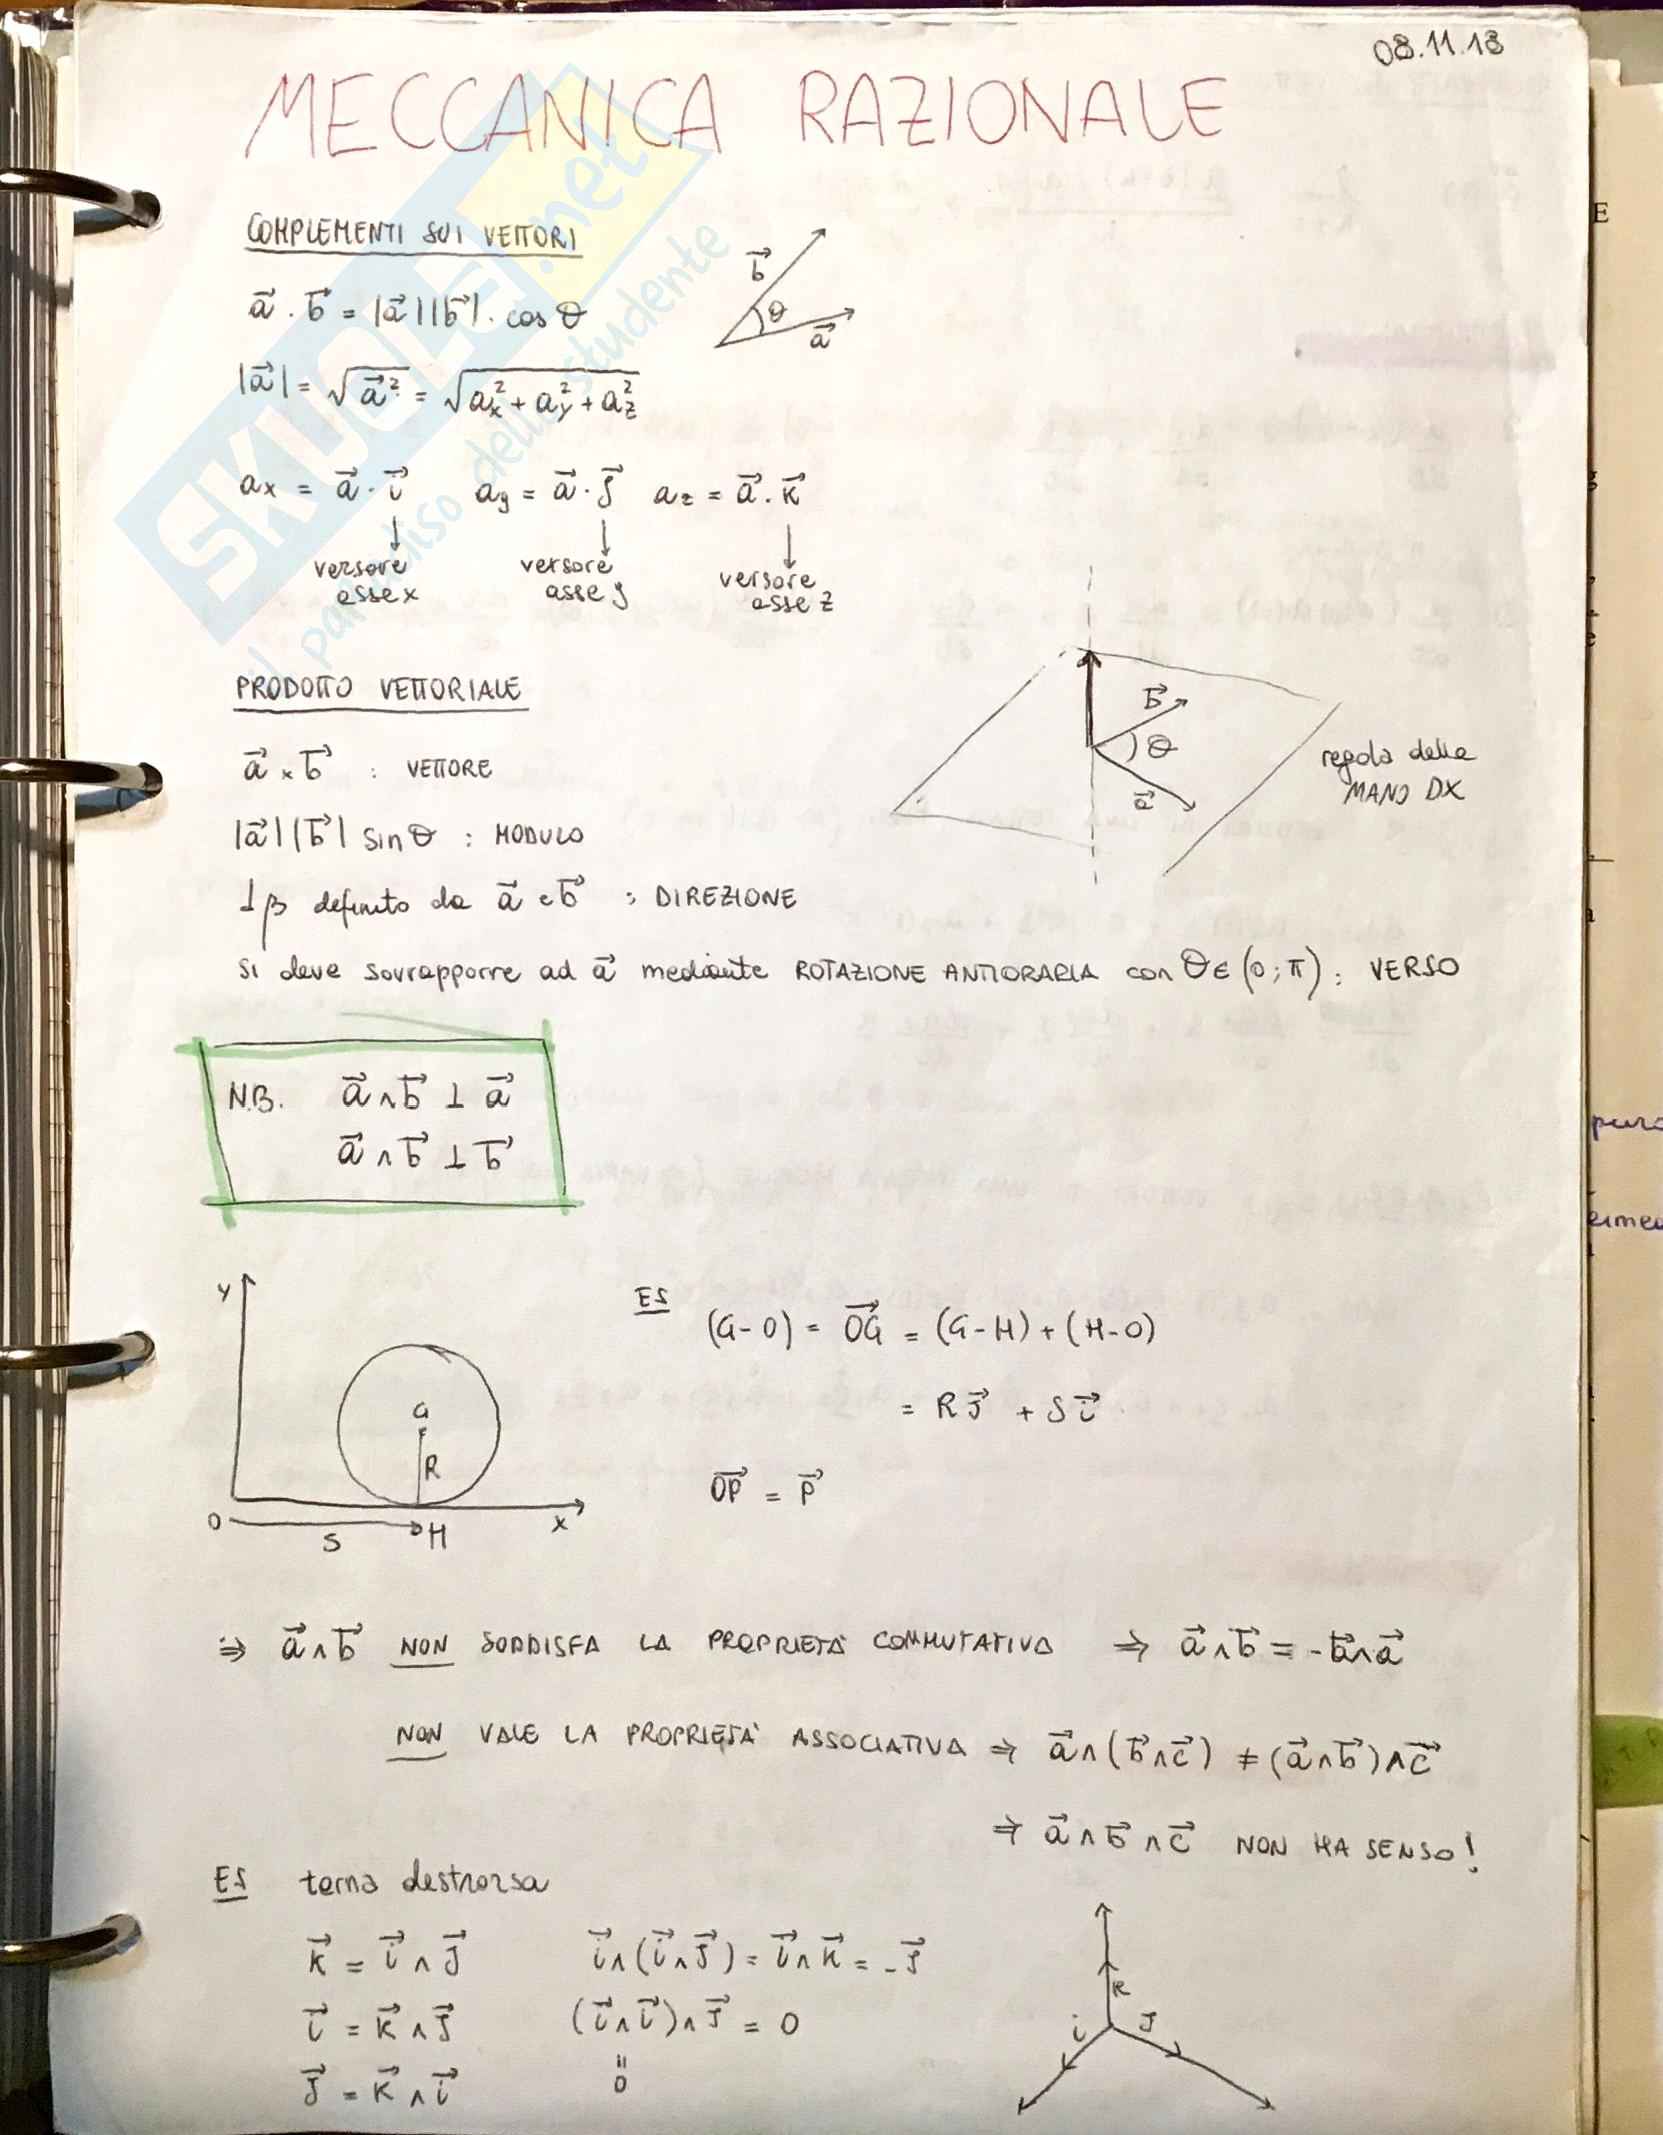 08.11.18
MECCANICA RAZIONALE
COMPLEMENTI SUI VETTORI
a⃗ · b⃗ = |a⃗||b⃗| · cos θ
b⃗
θ
a⃗
|a⃗| = √a⃗² = √ax² + ay² + az²
ax = a⃗ · i⃗ ay = a⃗ · j⃗ az = a⃗ · k⃗
↓ ↓ ↓
versore versore versore
asse x asse y asse z
PRODOTTO VETTORIALE
b⃗
θ
a⃗
regola della
MANO DX
a⃗ × b⃗ : VETTORE
|a⃗||b⃗| sin θ : MODULO
⊥ β definito da a⃗ e b⃗ : DIREZIONE
si deve sovrapporre ad a⃗ mediante ROTAZIONE ANTIORARIA con θ ∈ (0; π) : VERSO
N.B. a⃗ ∧ b⃗ ⊥ a⃗
a⃗ ∧ b⃗ ⊥ b⃗
y
G
R
O
S
H
x
ES (G-O) = OG⃗ = (G-H) + (H-O)
= R j⃗ + S i⃗
OP⃗ = P⃗
⇒ a⃗ ∧ b⃗ NON SODDISFA LA PROPRIETÀ COMMUTATIVA ⇒ a⃗ ∧ b⃗ = - b⃗ ∧ a⃗
NON VALE LA PROPRIETÀ ASSOCIATIVA ⇒ a⃗ ∧ (b⃗ ∧ c⃗) ≠ (a⃗ ∧ b⃗) ∧ c⃗
⇒ a⃗ ∧ b⃗ ∧ c⃗ NON HA SENSO!
ES terna destrorsa
k⃗ = i⃗ ∧ j⃗ i⃗ ∧ (i⃗ ∧ j⃗) = i⃗ ∧ k⃗ = - j⃗
i⃗ = k⃗ ∧ j⃗ (i⃗ ∧ i⃗) ∧ j⃗ = 0
j⃗ = k⃗ ∧ i⃗ = 0
k
i
j
SKUOLA.net
il paradiso dello studente